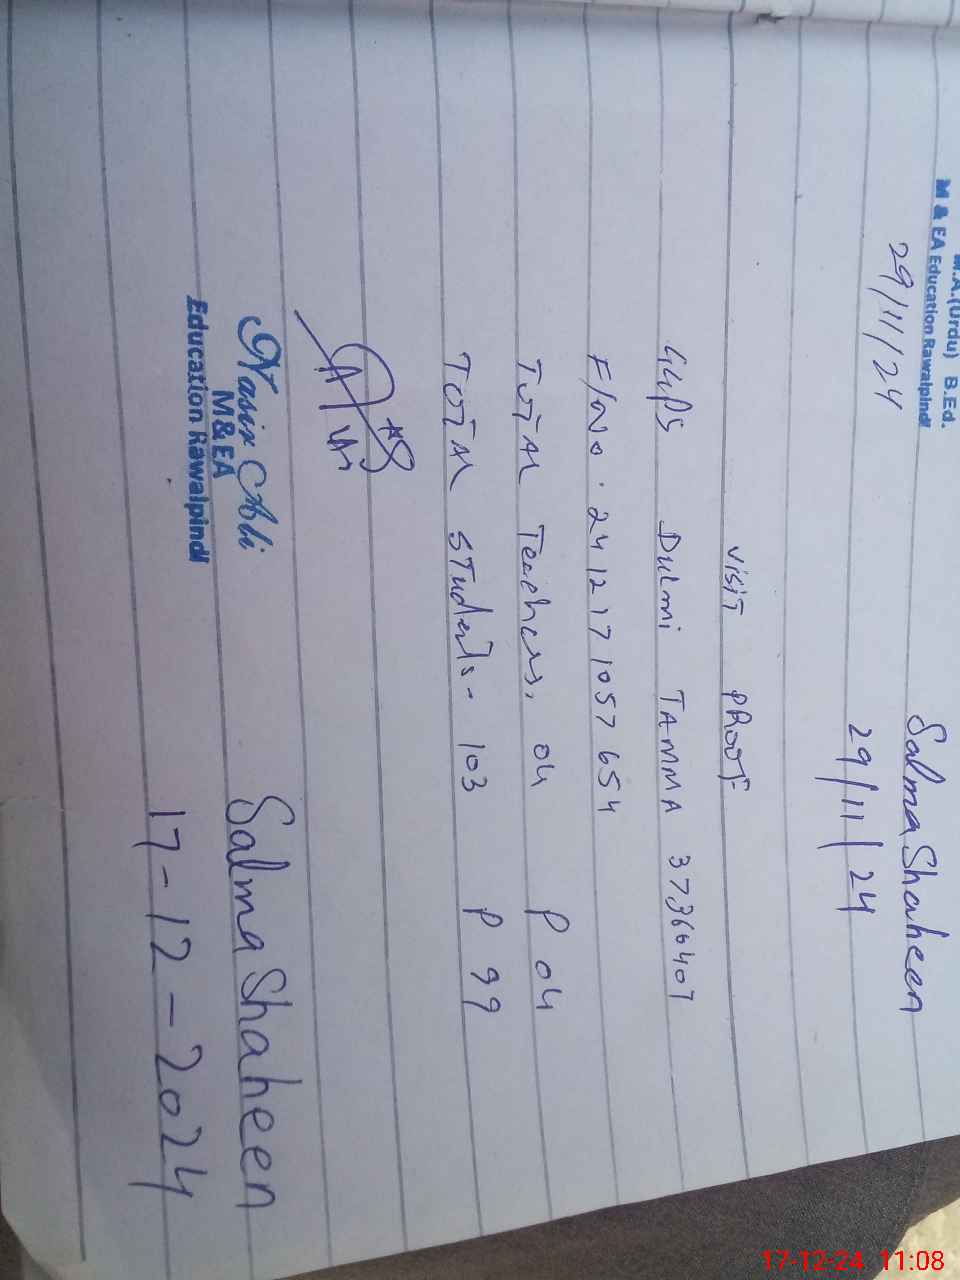 M.A.(Urdu) B.Ed.
M & EA Education Rawalpindi
Salma Shaheen
29/11/24
29/11/24
Visit PROOF
GGPS Dulmi TAMMA 37366407
F/No. 2412171057654
Total Teachers. 04 P 04
Total Students - 103 P 99
Nasir Ali
M&EA
Education Rawalpindi
Salma Shaheen
17-12-2024
17-12-24 11:08